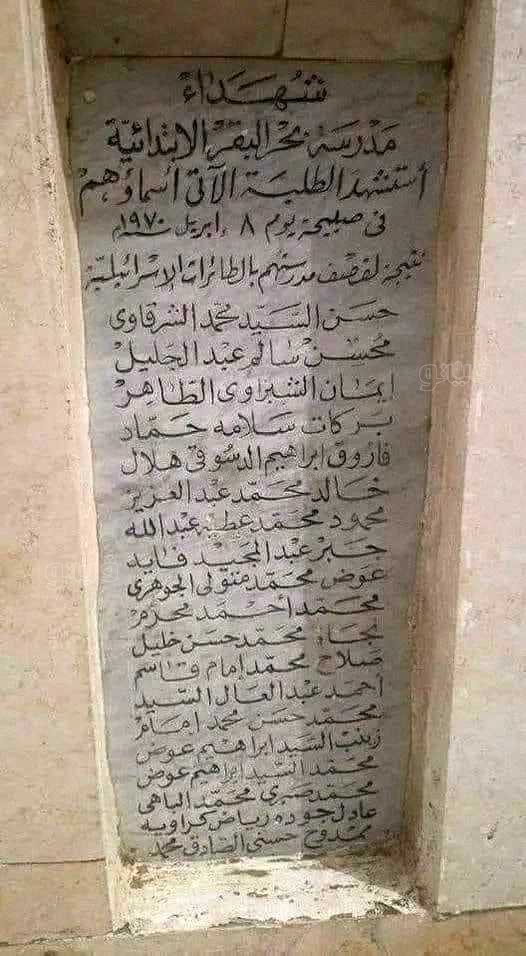 شهداء
مدرسة بحر البقر الابتدائية
أستشهد الطلبة الآتى أسماؤهم
فى صبيحة يوم ٨ ابريل سنة ١٩٧٠م
نتيجة لقصف مدرستهم بالطائرات الإسرائيلية
حسن السيد محمد الشرقاوى
محسن سالم عبد الجليل
ايمان الشبراوى الطاهر
بركات سلامه حماد
فاروق ابراهيم الدسوقى هلال
خالد محمد عبد العزيز
محمود محمد عطيه عبد الله
جبر عبد المجيد فايد
عوض محمد متولى الجوهرى
محمد أحمد محرم
نجاه محمد حسن خليل
صلاح محمد إمام قاسم
أحمد عبد العال السيد
محمد حسن محمد امام
زينب السيد ابراهيم عوض
محمد السيد ابراهيم عوض
محمد صبرى محمد الباهى
عادل جوده رياض كراويه
ممدوح حسنى الصادق محمد